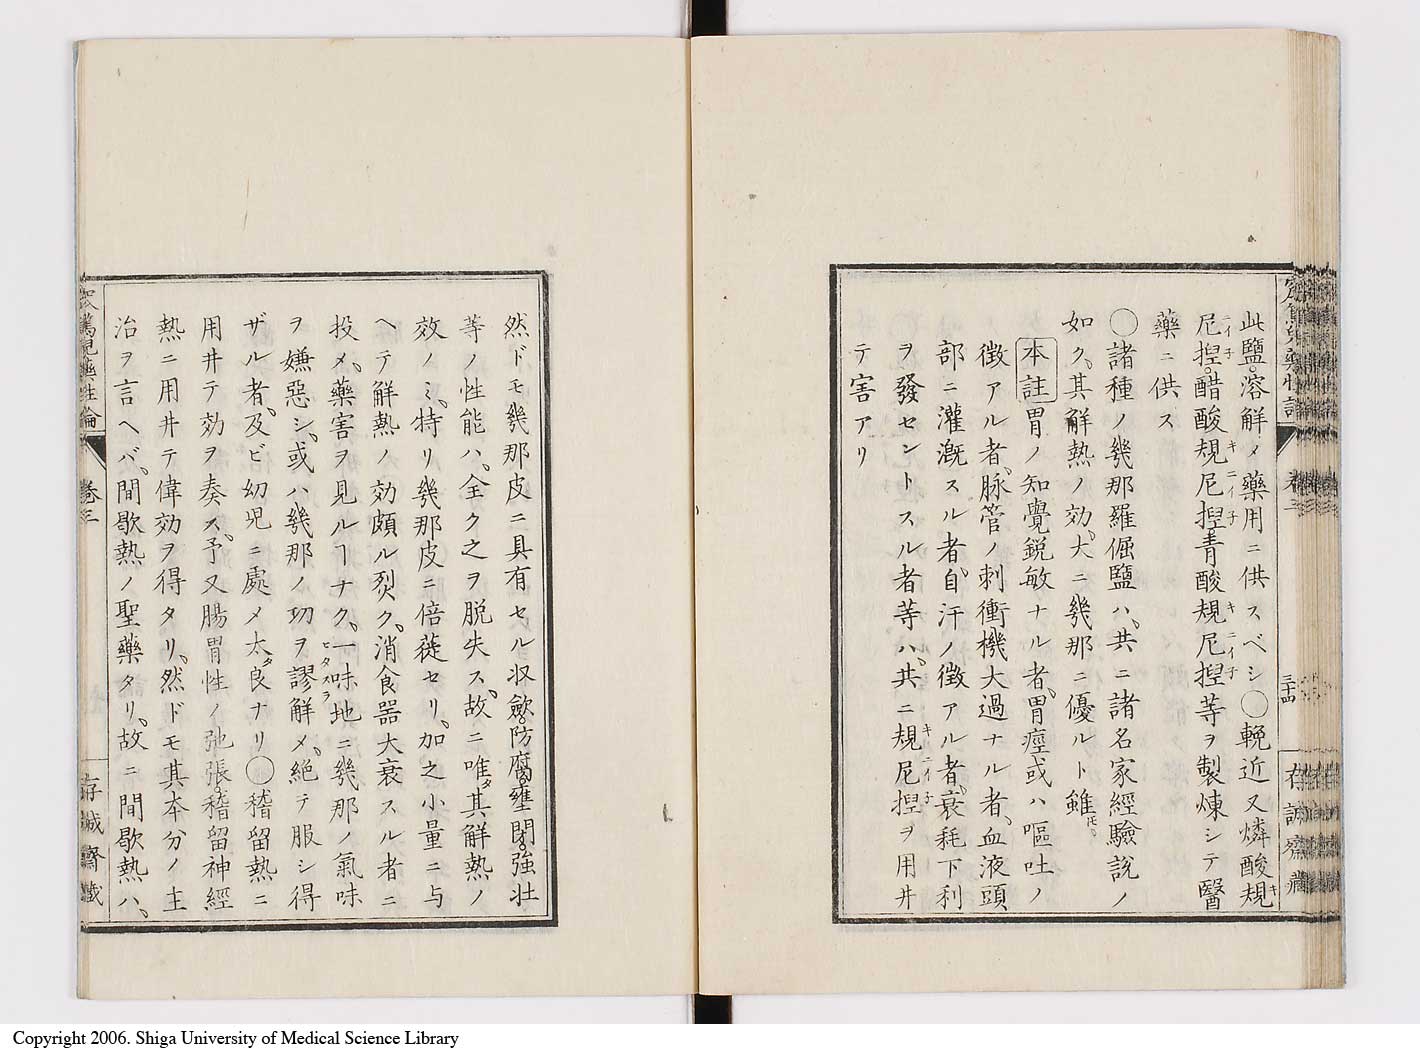 此鹽溶解メ藥用ニ供スベシ〇輓近又燐酸規
尼揑醋酸規尼揑青酸規尼揑等ヲ製煉シテ醫
藥ニ供ス
〇諸種ノ幾那羅倔鹽ハ、共ニ諸名家經驗說ノ
如ク、其解熱ノ効、大ニ幾那ニ優ルト雖𪜈、
本註胃ノ知覺鋭敏ナル者、胃痙或ハ嘔吐ノ
徵アル者、脉管ノ刺衝機大過ナル者、血液頭
部ニ灌漑スル者、自汗ノ徵アル者、衰耗下利
ヲ發セントスル者等ハ、共ニ規尼揑ヲ用井
テ害アリ
三十四
存誠齋藏
然ドモ幾那皮ニ具有セル収歛防腐壅閉強壮
等ノ性能ハ、全ク之ヲ脱失ス、故ニ唯其解熱ノ
效ノミ、特リ幾那皮ニ倍蓰セリ、加之小量ニ与
ヘテ解熱ノ効頗ル烈ク、消食器大衰スル者ニ
投メ、藥害ヲ見ルヿナク、一味地ニ幾那ノ氣味
ヲ嫌惡シ、或ハ幾那ノ功ヲ謬解メ、絶テ服シ得
ザル者、及ビ幼児ニ處メ太良ナリ〇稽留熱ニ
用井テ効ヲ奏ス、予又腸胃性ノ弛張稽留神經
熱ニ用井テ偉効ヲ得タリ、然ドモ其本分ノ主
治ヲ言ヘバ、間歇熱ノ聖藥タリ、故ニ間歇熱ハ、
窊篤児藥性論
巻三
存誠齋藏
Copyright 2006. Shiga University of Medical Science Library